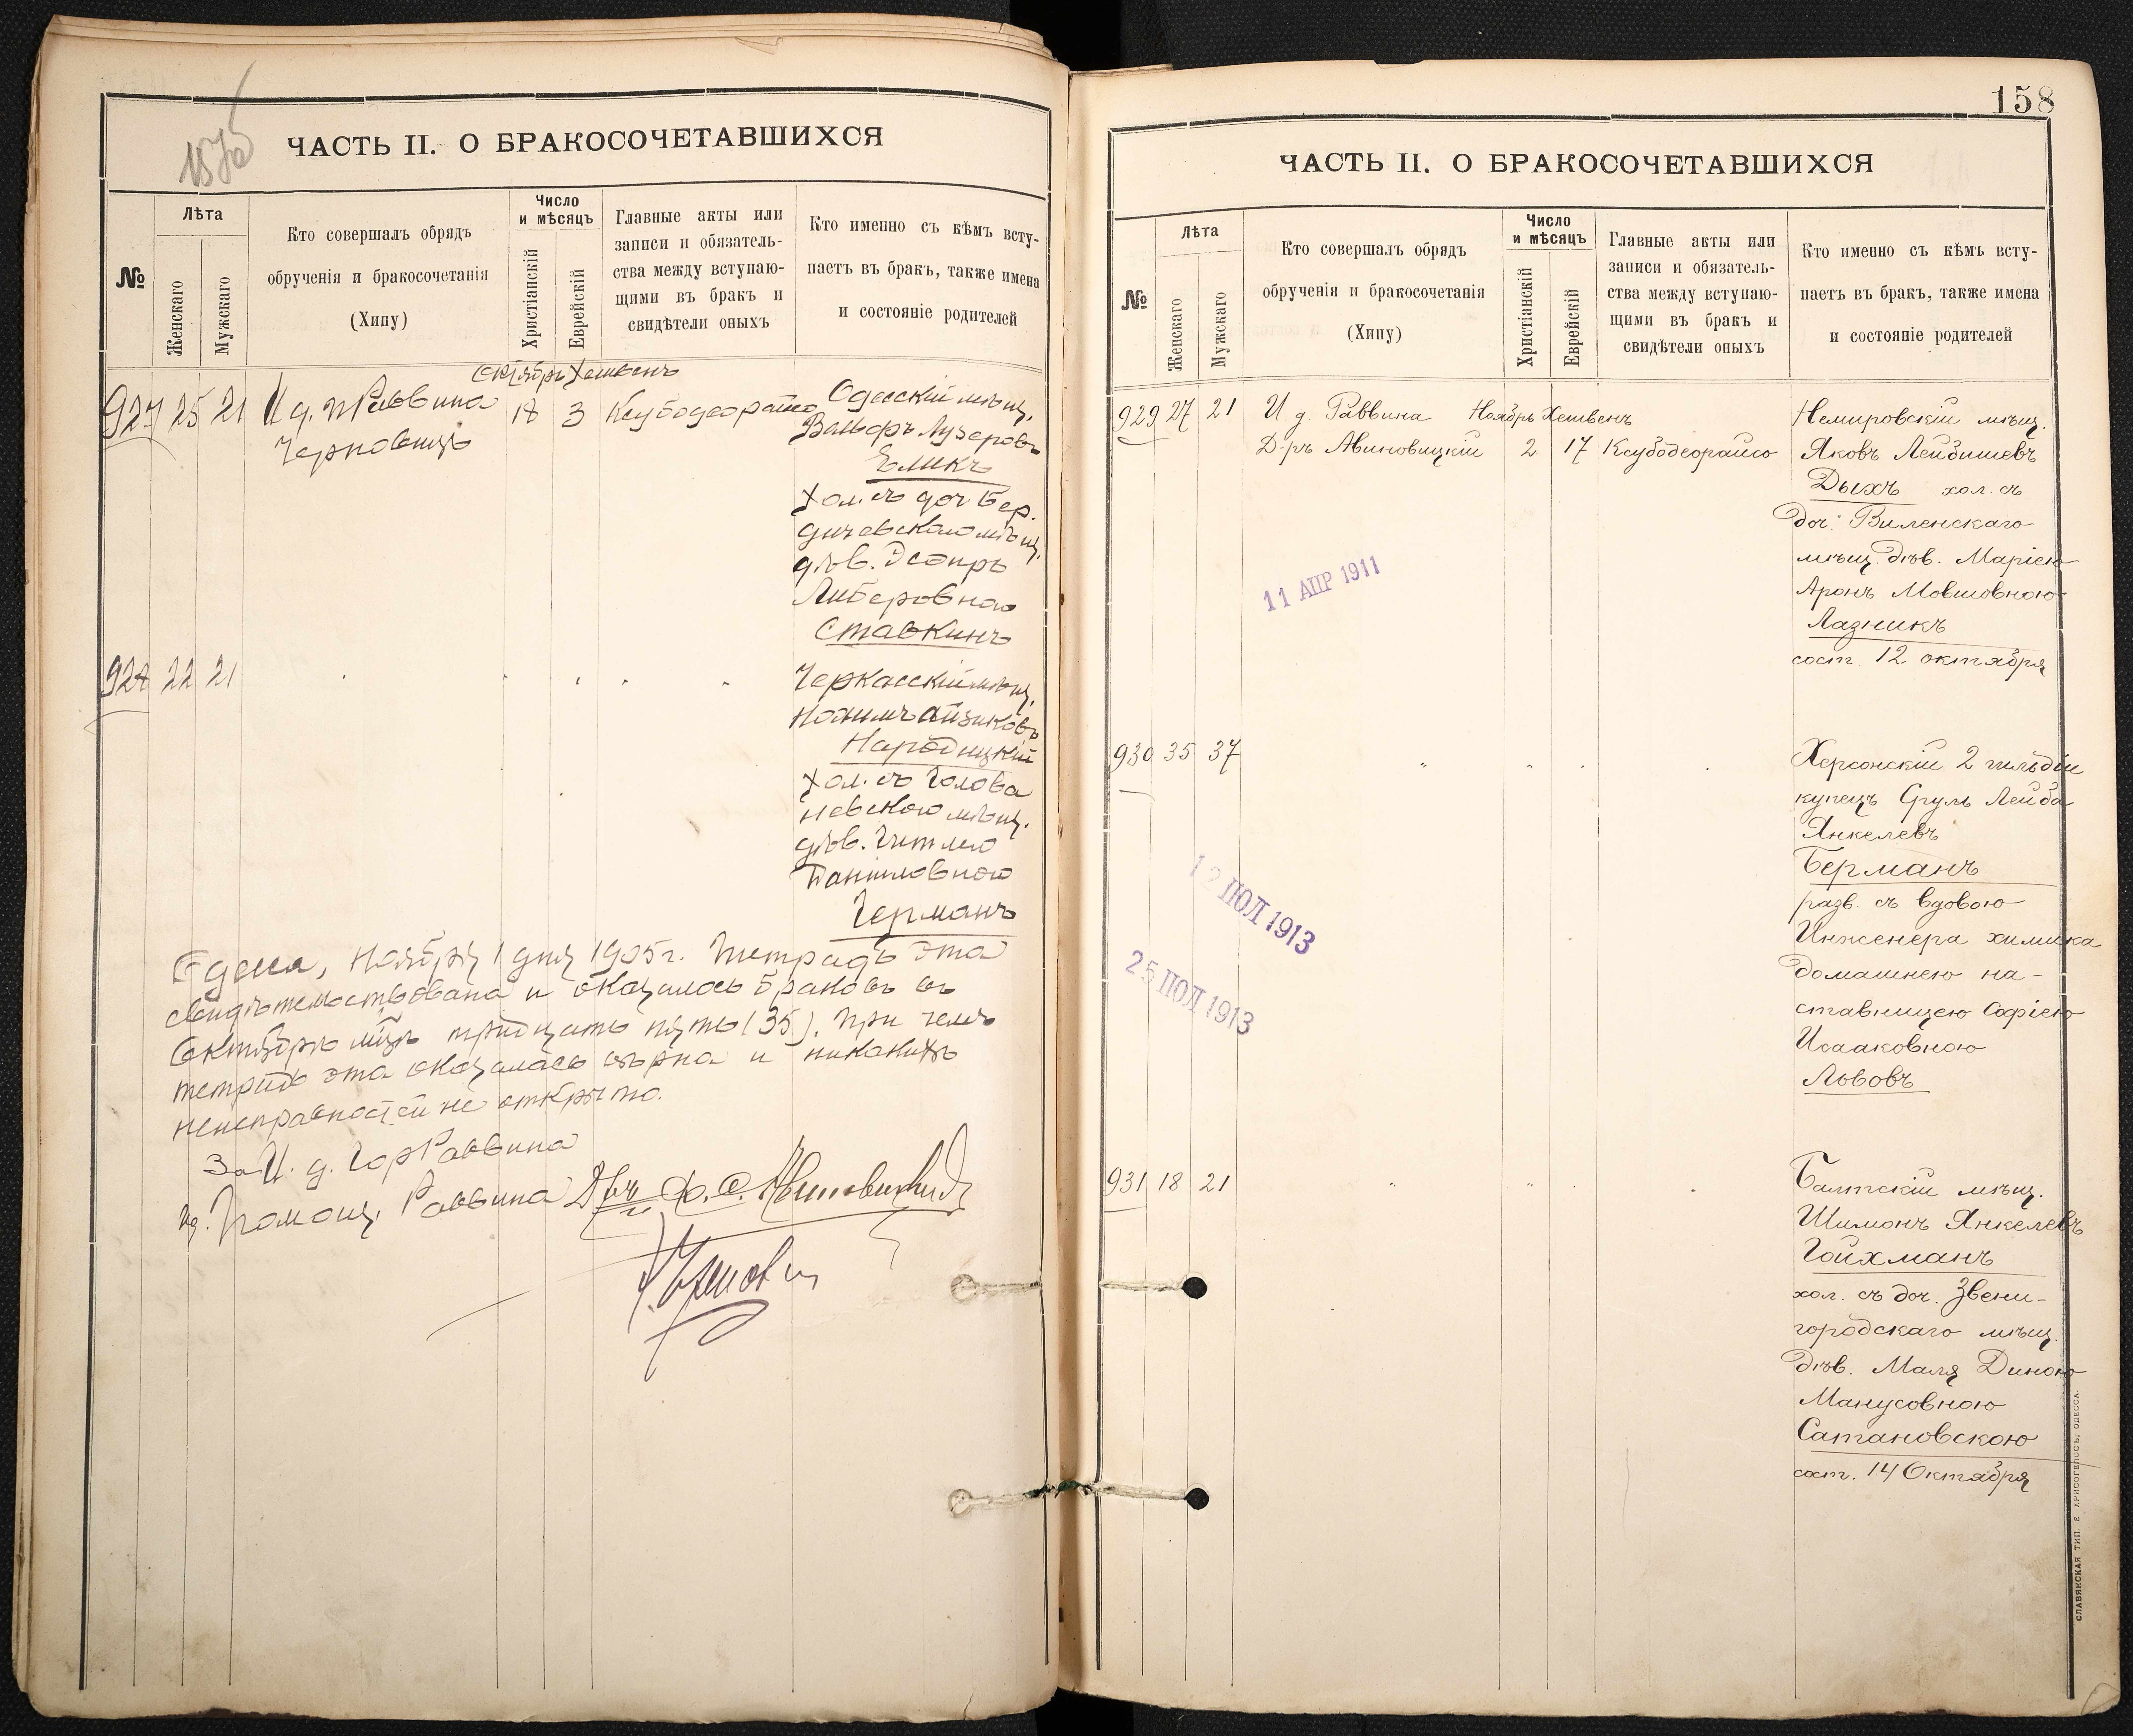 157об
ЧАСТЬ II. О БРАКОСОЧЕТАВШИХСЯ
№
Лѣта
Женскаго
Мужскаго
Кто совершалъ обрядъ
обрученія и бракосочетанія
(Хипу)
Число
и мѣсяцъ
Христіанскій
Еврейскій
Главные акты или
записи и обязатель-
ства между вступаю-
щими въ бракъ и
свидѣтели оныхъ
Кто именно съ кѣмъ всту-
паетъ въ бракъ, также имена
и состояніе родителей
Октябрь Хешвенъ
927 25 21 И д. п Раввина 18 3 Ксубодеорайсо Одесскій мѣщ.
Черковицъ
Вольфъ Лузеровъ
Бликъ
хол. съ доч Бер.
дичевскаго мѣщ.
дѣв. Эсѳирь
Либеровною
Ставкинъ
928 22 21 Черкасскій мѣщ.
Нахимъ Айзиковъ
Народицкій
хол. съ Голова
невскою мѣщ.
дѣв. Гитлею
Даниловною
Германъ
Одесса, Ноября 1 дня 1905 г. Тетрадь эта
свидѣтельствована и оказалось браковъ въ
Октябрѣ мѣцѣ тридцать пять (35). При чемъ
тетрадь эта оказалась вѣрна и никакихъ
неисправностей не открыто.
За И. д. Гор Раввина
Ид. Помощ. Раввина Д-ръ
158
ЧАСТЬ II. О БРАКОСОЧЕТАВШИХСЯ
№
Лѣта
Женскаго
Мужскаго
Кто совершалъ обрядъ
обрученія и бракосочетанія
(Хипу)
Число
и мѣсяцъ
Христіанскій
Еврейскій
Главные акты или
записи и обязатель-
ства между вступаю-
щими въ бракъ и
свидѣтели оныхъ
Кто именно съ кѣмъ всту-
паетъ въ бракъ, также имена
и состояніе родителей
929 27 21 И. д. Раввина Ноябрь Хешвенъ Немировскій мѣщ.
Д-ръ Авиновицкій 2 17 Ксубодеорайсо Яковъ Лейбишевъ
Дыхъ хол. съ
доч. Виленскаго
мѣщ. дѣв. Маріею
Аронъ Мовшовною
Лазникъ
сост. 12 октября
11 АПР 1911
930 35 37 Херсонскій 2 гильдіи
купецъ Сруль Лейба
Янкелевъ
Берманъ
разв. съ вдовою
Инженера химика
домашнею на-
ставницею Софіею
Исааковною
Львовъ
ІЮЛ 1913
25 ІЮЛ 1913
931 18 21 Балтскій мѣщ.
Шимонъ Янкелевъ
Гойхманъ
хол. съ доч. Звени-
городскаго мѣщ.
дѣв. Маля Диною
Манусовною
Сатановскою
сост. 14 Октября
СЛАВЯНСКАЯ ТИП. Е. ХРИСОГЕЛОСЪ, ОДЕССА.